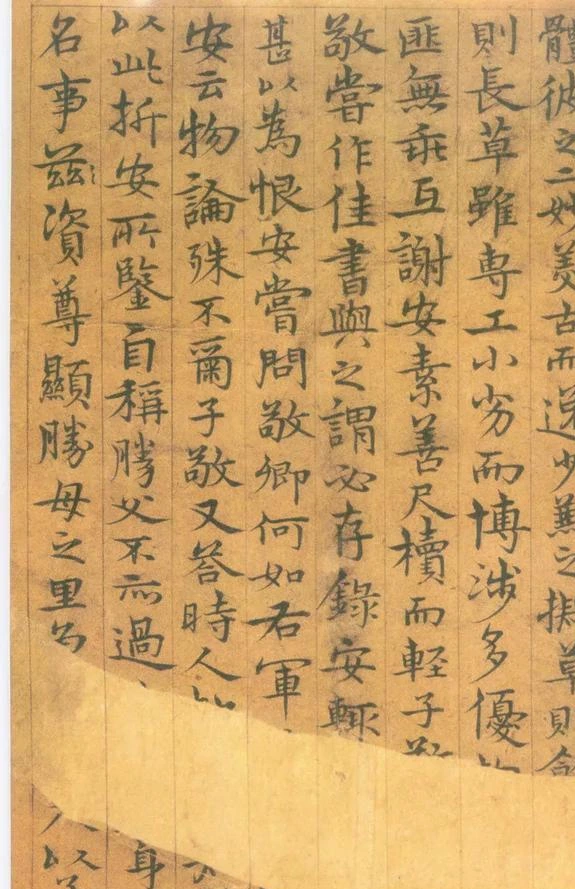 體彼之二妙羙古而逸少兼之擬草則
則長草雖専工小劣而博涉多優
匪無乖互謝安素善尺牘而軽子敬
敬嘗作佳書與之謂必存錄安輒
甚以為恨安嘗問敬卿何如右軍
安云物論殊不爾子敬又荅時人
以此折安所鑒自稱勝父不亦過 身
名事茲資尊顯勝母之里 以